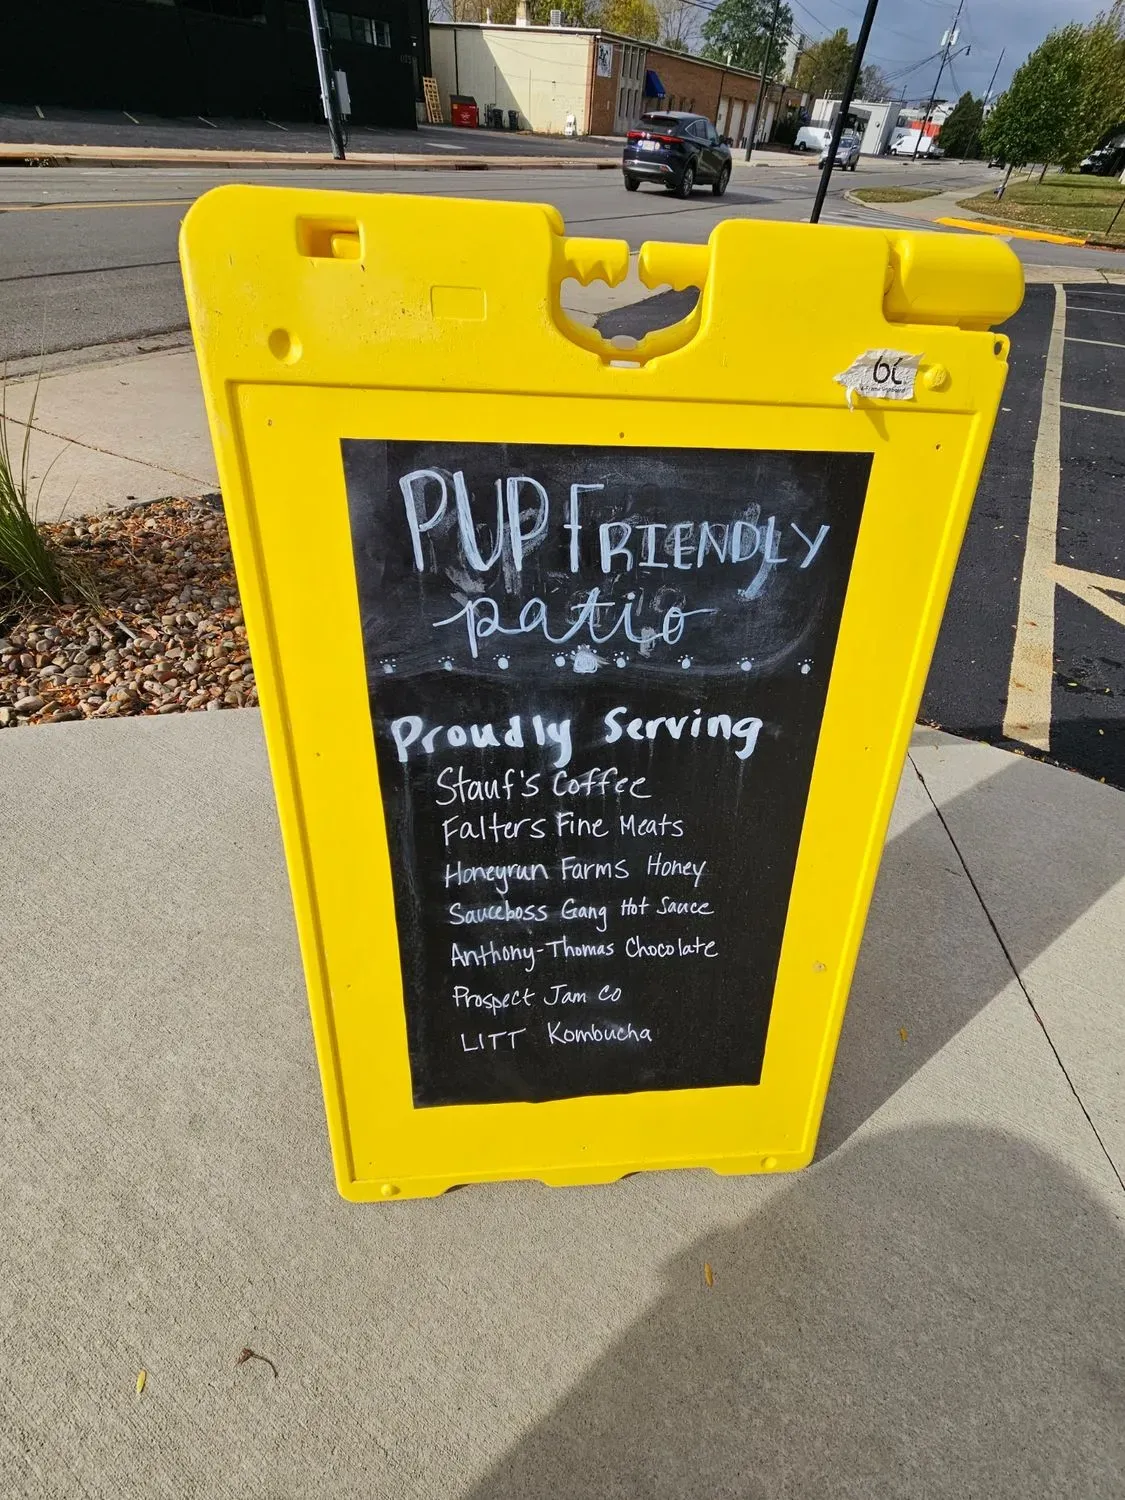 6C
PUP FRIENDLY
patio
Proudly Serving
Stauf's Coffee
Falters Fine Meats
Honeyrun Farms Honey
Sauceboss Gang Hot Sauce
Anthony-Thomas Chocolate
Prospect Jam Co
LITT Kombucha